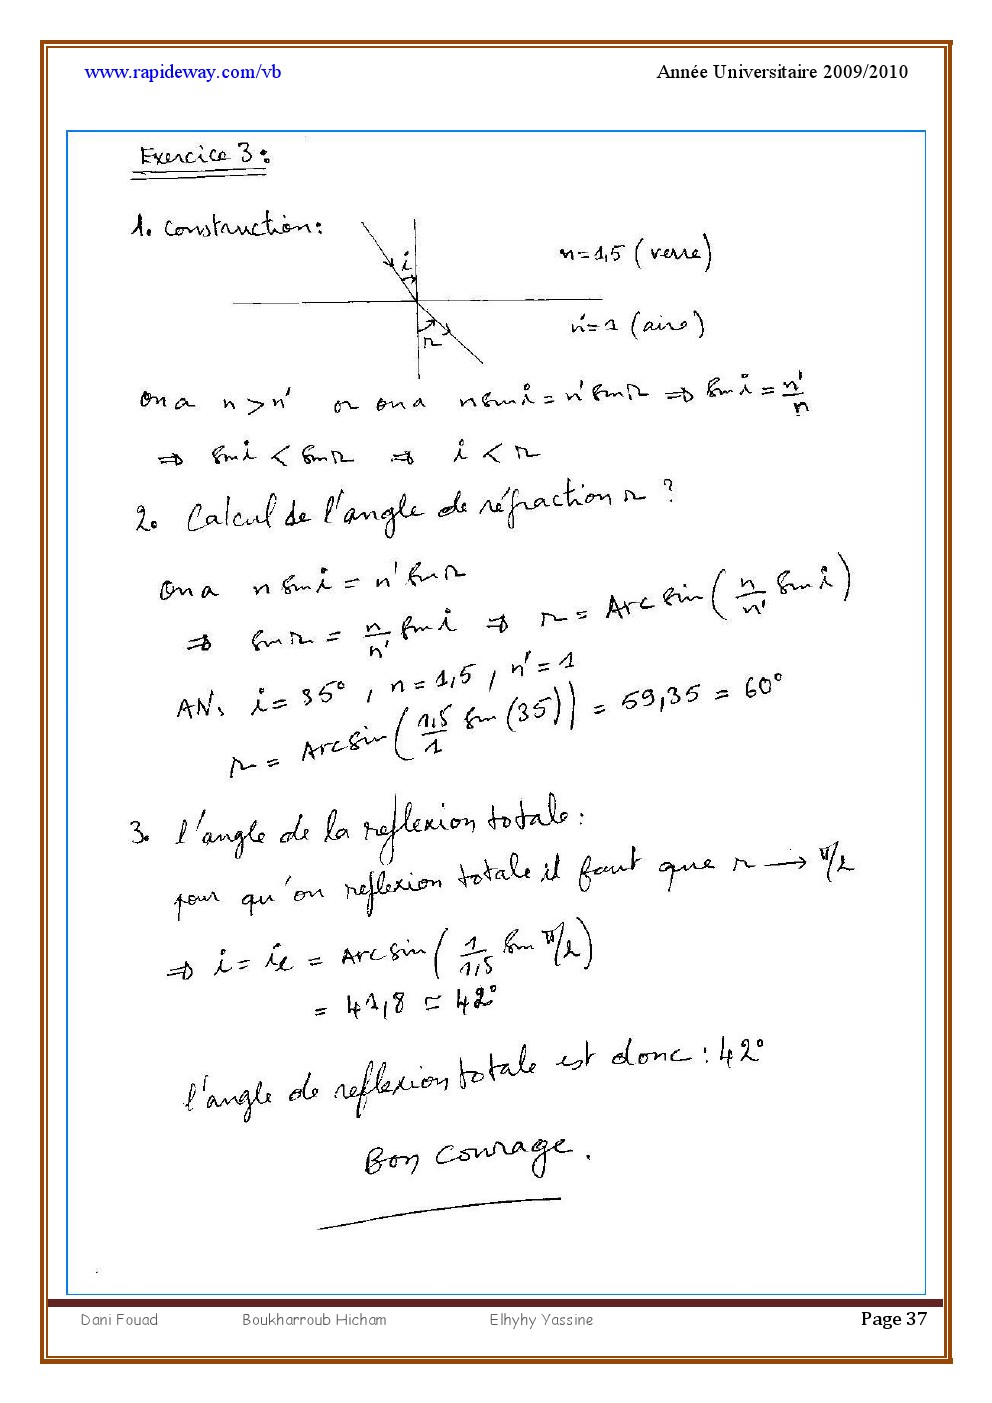 www.rapideway.com/vb Année Universitaire 2009/2010
Exercice 3 :
1. Construction :
i
n = 1,5 (verre)
n' = 1 (aire)
r
On a n > n' or on a n sin i = n' sin r ⇒ sin i = n'/n
⇒ sin i < sin r ⇒ i < r
2. Calcul de l'angle de réfraction r ?
On a n sin i = n' sin r
⇒ sin r = n/n' sin i ⇒ r = Arcsin(n/n' sin i)
AN. i = 35° , n = 1,5 , n' = 1
r = Arcsin(1,5/1 sin(35)) = 59,35 = 60°
3. l'angle de la reflexion totale :
pour qu'on reflexion totale il faut que r → π/2
⇒ i = iℓ = Arcsin(1/1,5 sin π/2)
= 41,8 ≃ 42°
l'angle de reflexion totale est donc : 42°
Bon courage.
Dani Fouad Boukharroub Hicham Elhyhy Yassine Page 37